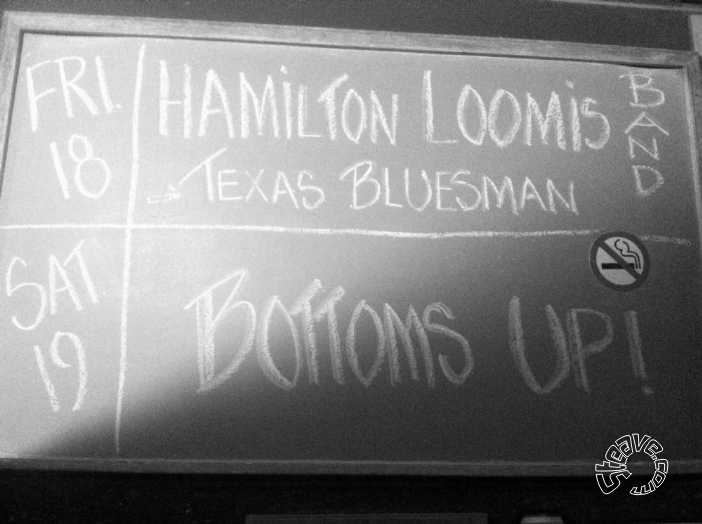 FRI. 18
HAMILTON LOOMIS BAND
- TEXAS BLUESMAN
SAT. 19
BOTTOMS UP!
Steave.com